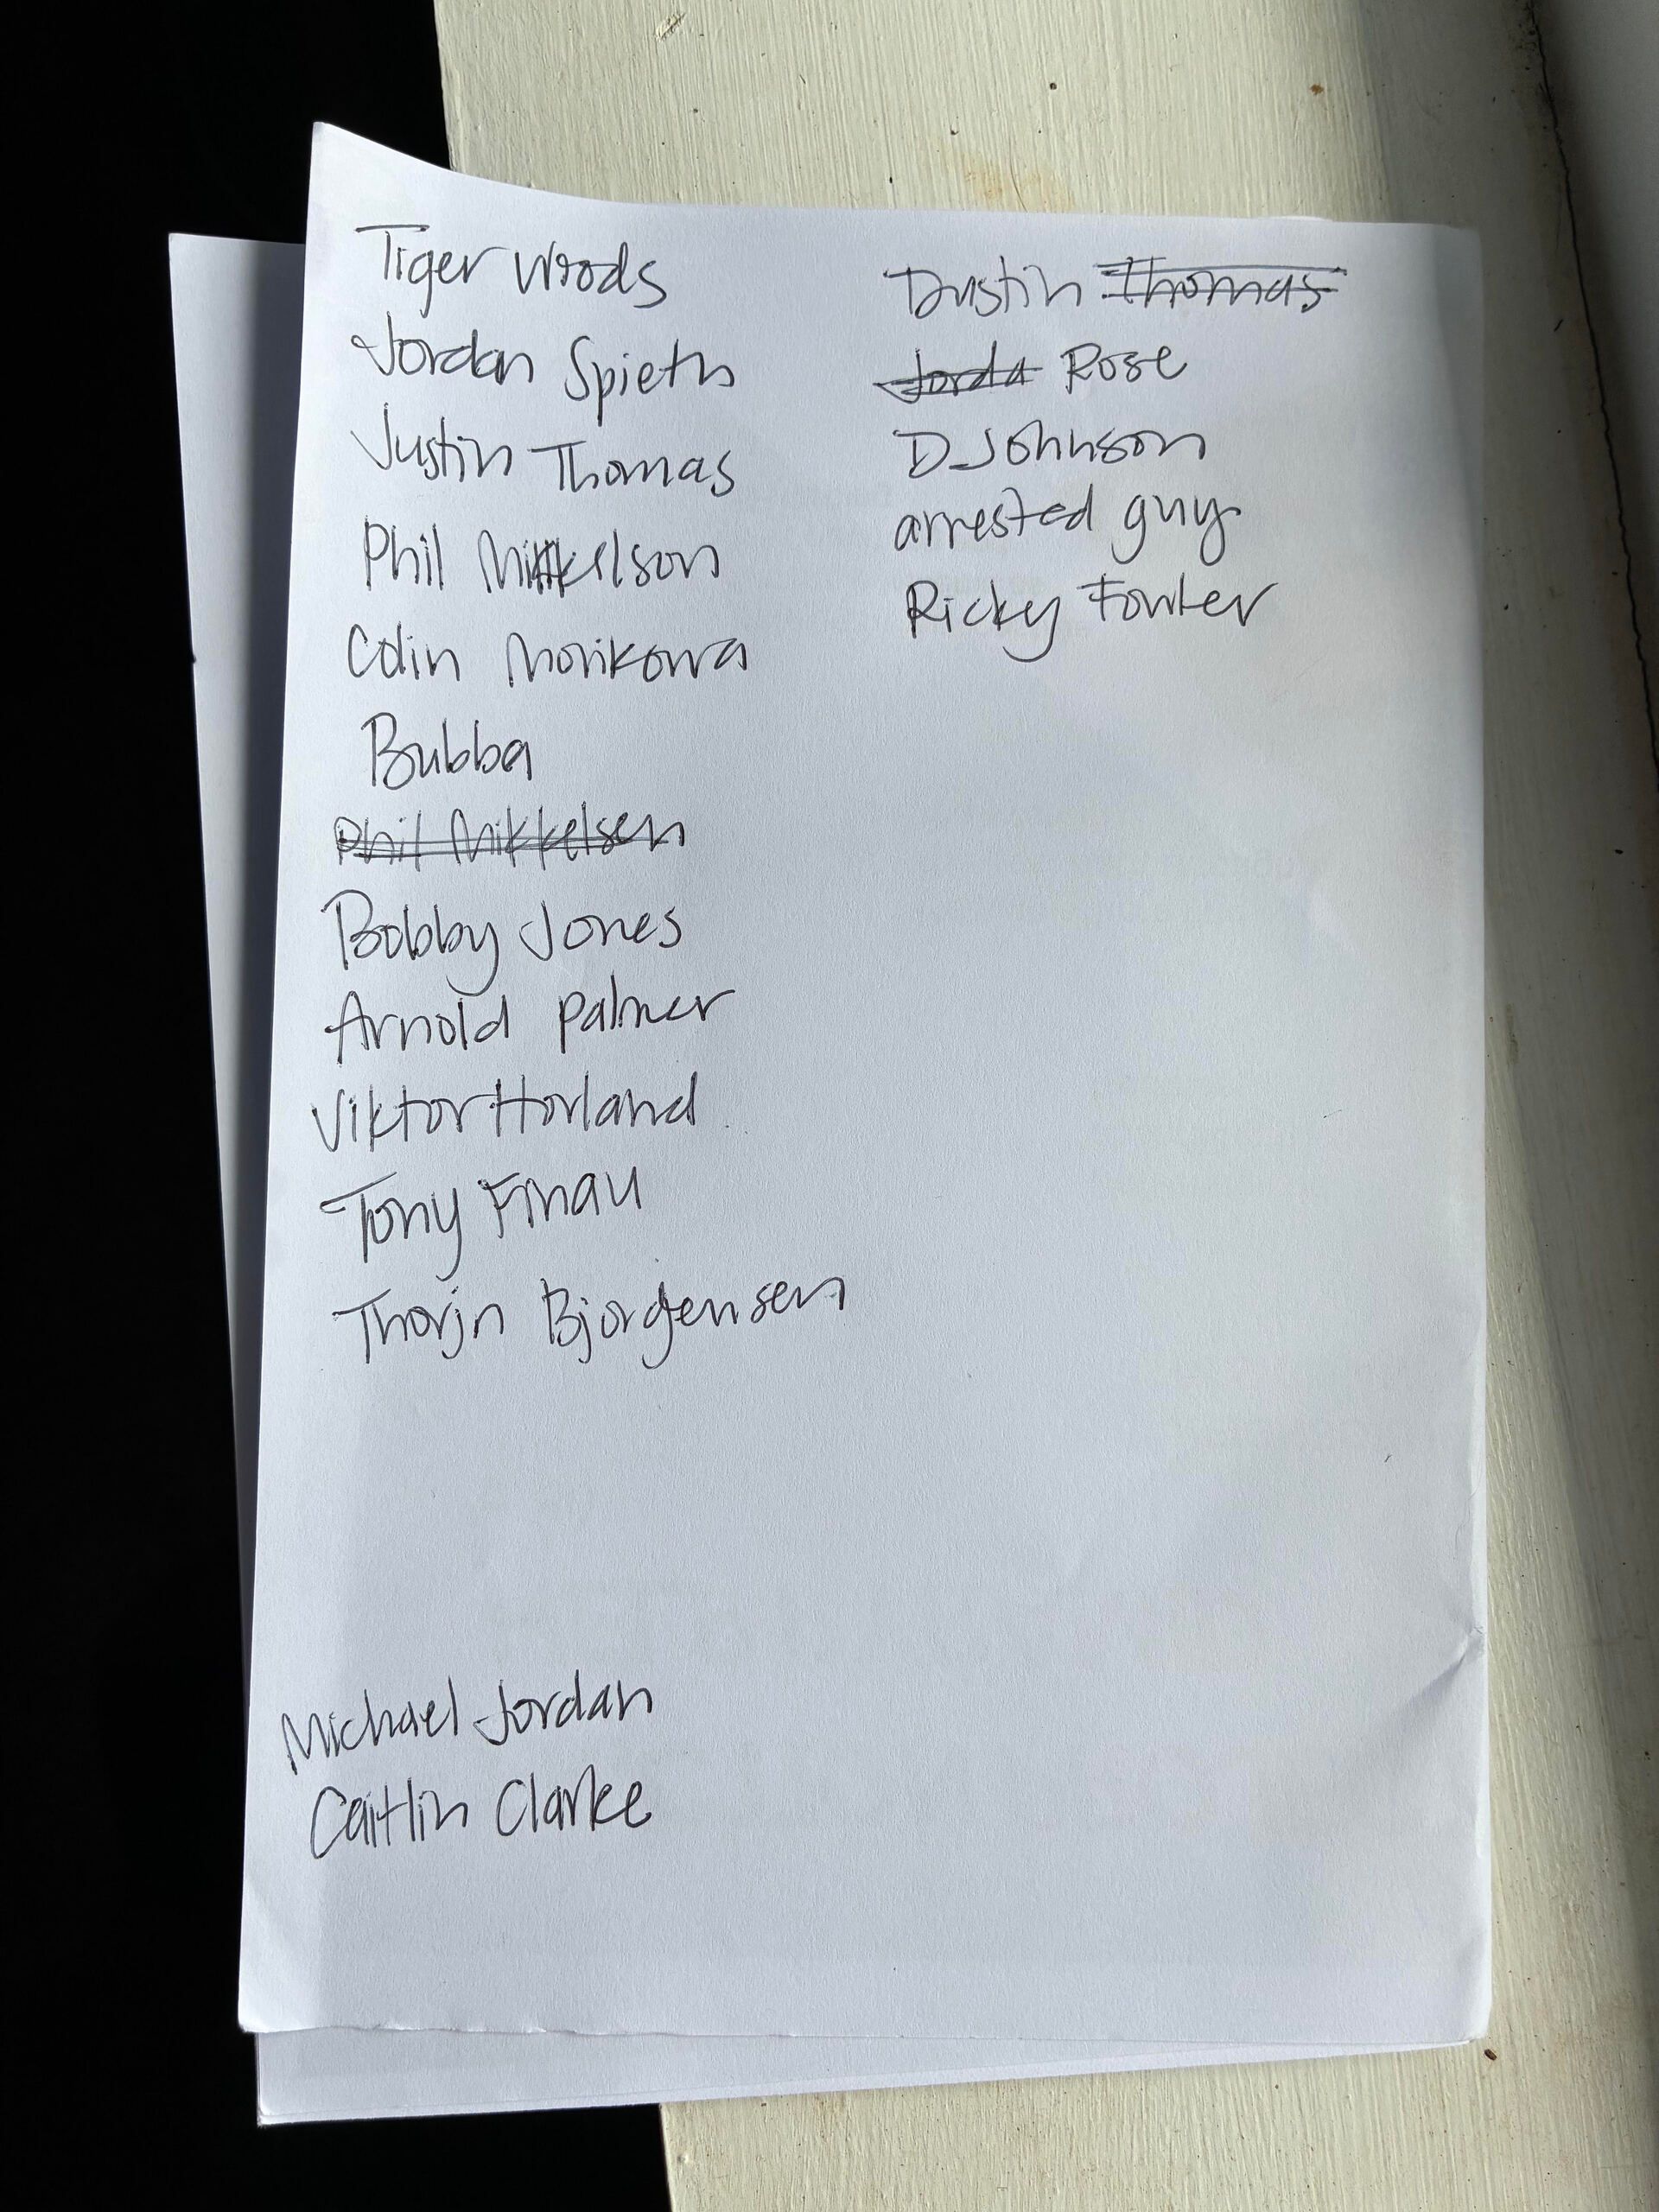 Tiger Woods
Jordan Spieth
Justin Thomas
Phil Mikkelson
Colin Morikowa
Bubba
Phil Mikkelsen
Bobby Jones
Arnold Palmer
Viktor Hovland
Tony Finau
Thorjn Bjorgensen
Michael Jordan
Caitlin Clarke
Dustin Thomas
Jorda Rose
D Johnson
arrested guy
Ricky Fowler